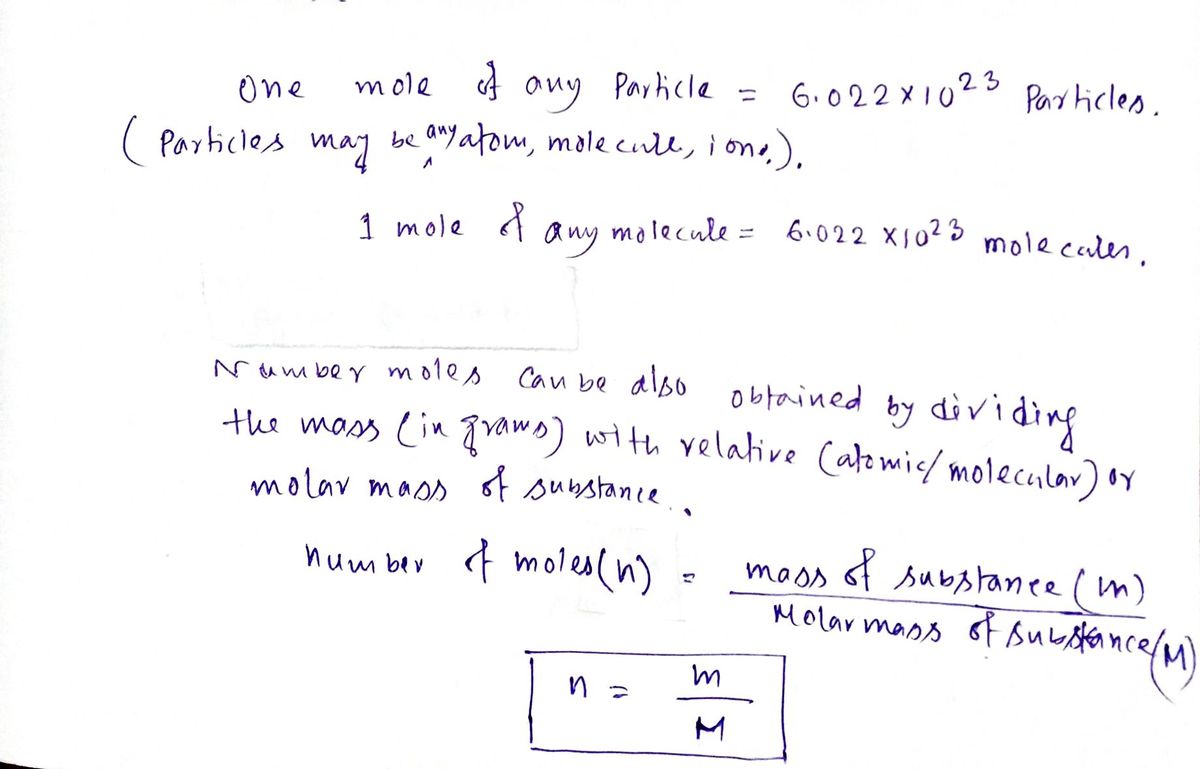 One mole of any Particle = 6.022 × 10²³ Particles.
( Particles may be any atom, molecule, ions.).
1 mole of any molecule = 6.022 ×10²³ molecules.
Number moles can be also obtained by dividing
the mass (in grams) with relative (atomic/molecular) or
molar mass of substance.
number of moles(n) = mass of substance (m)
Molar mass of substance(M)
n = m
M